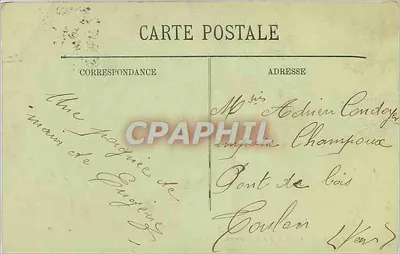 CARTE POSTALE
CORRESPONDANCE
ADRESSE
Une poignée de
main de Eugène
Adrien
Champoux
Pont de bois
Toulon
(Var)
CPAPHIL